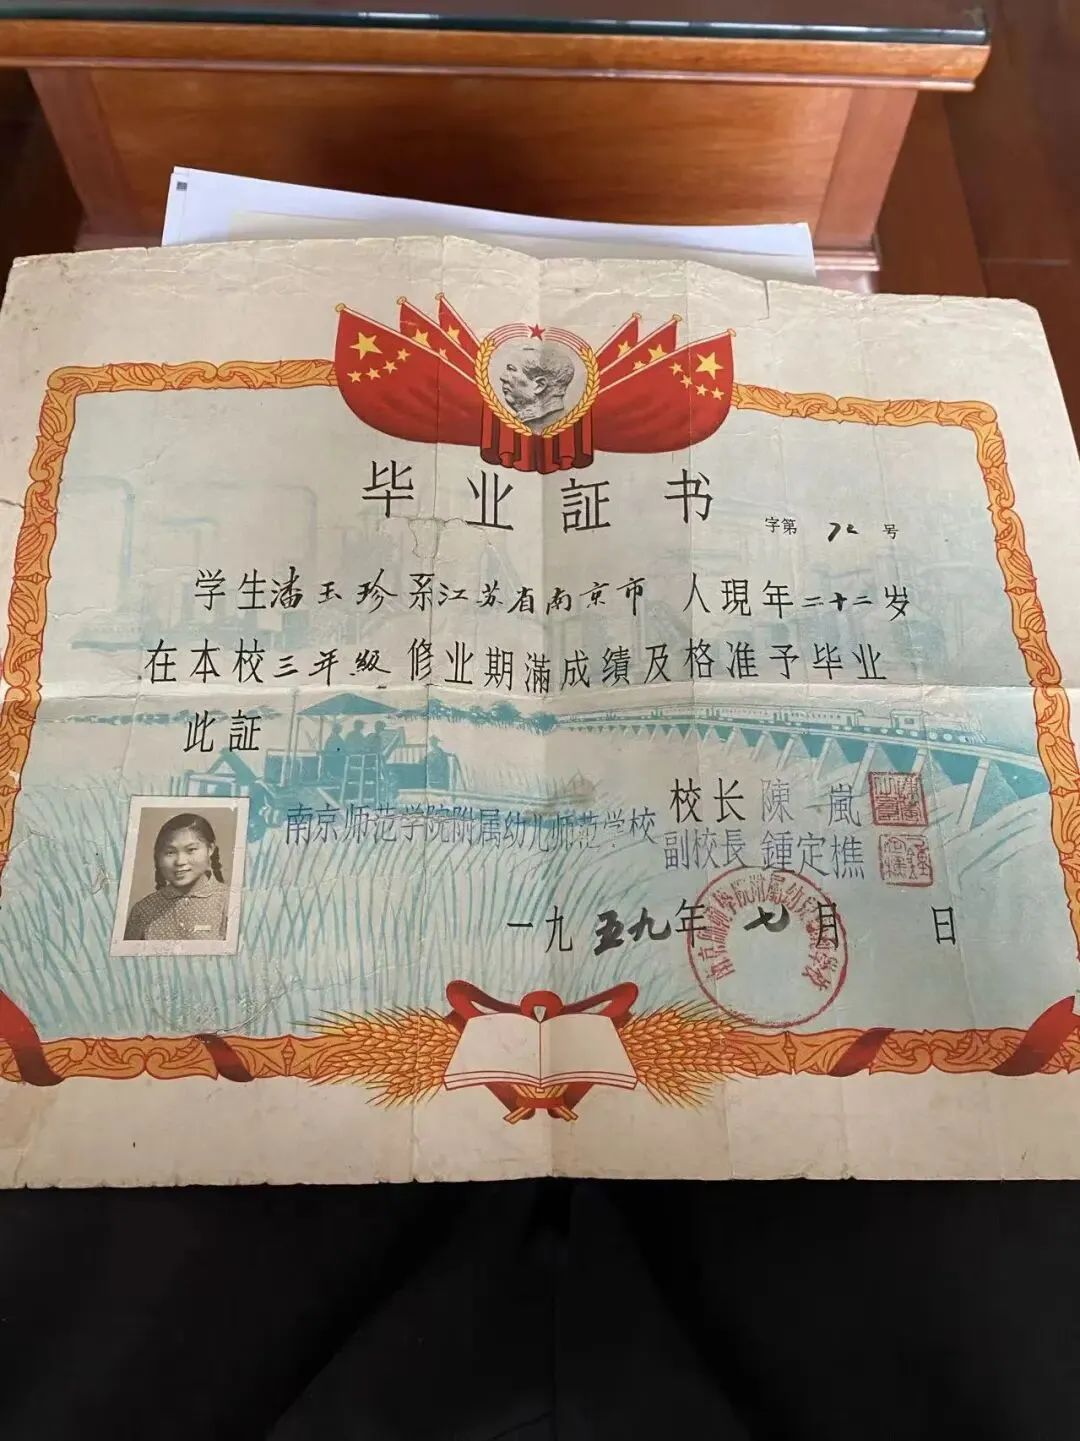 毕业証书
字第 72 号
学生潘玉珍系江苏省南京市 人現年二十二岁
在本校三年級 修业期滿成績及格准予毕业
此証
南京师范学院附属幼儿师范学校
校长 陳嵐
副校長 鍾定樵
一九五九年七月 日